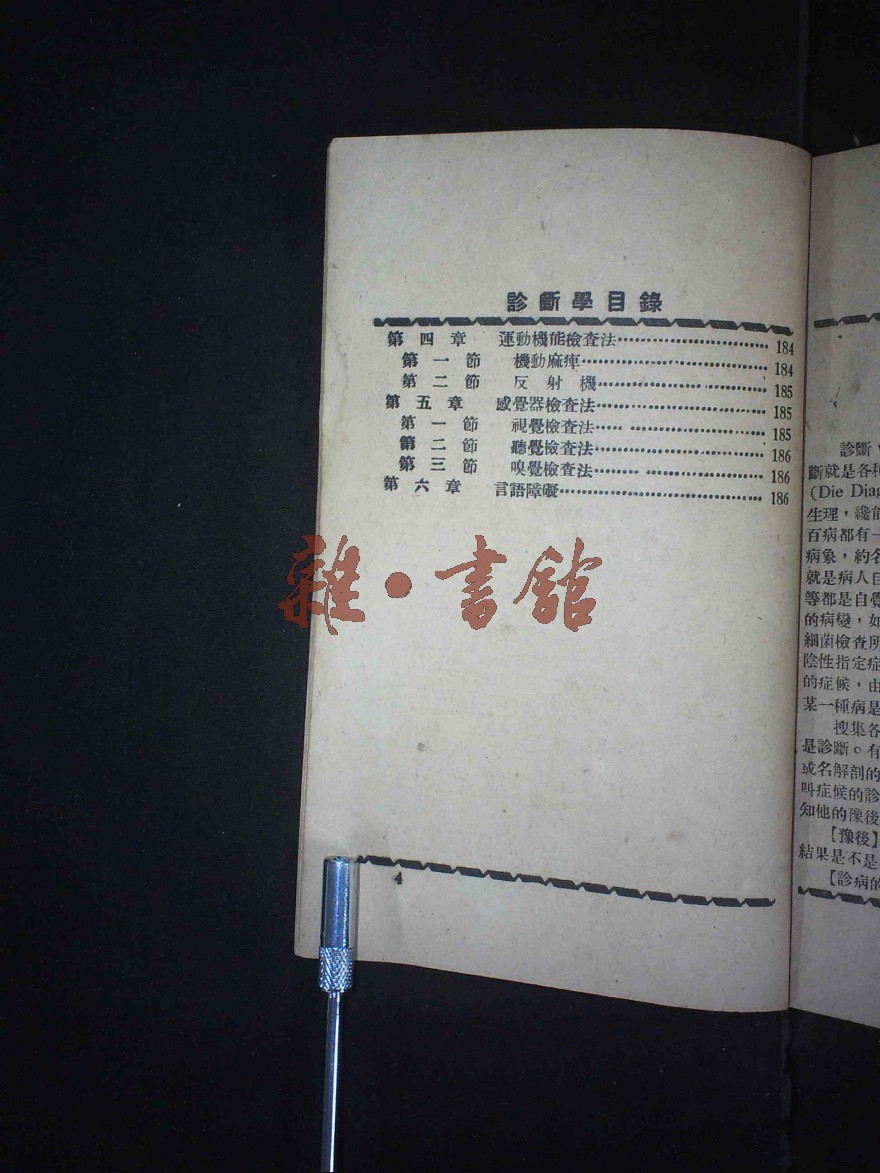 診斷學目錄
第四章 運動機能檢查法 184
第一節 機動麻痺 184
第二節 反射機 185
第五章 感覺器檢查法 185
第一節 視覺檢查法 185
第二節 聽覺檢查法 186
第三節 嗅覺檢查法 186
第六章 言語障礙 186
雜·書館
4
診斷
斷就是各種
(Die Diag
生理，纔前
百病都有一
病象，約名
就是病人自
等都是自覺
的病變，如
細菌檢查所
陰性指定症
的症候，由
某一種病是
搜集各
是診斷。有
或名解剖的
叫症候的診
知他的豫後
【豫後】
結果是不是
【診病的